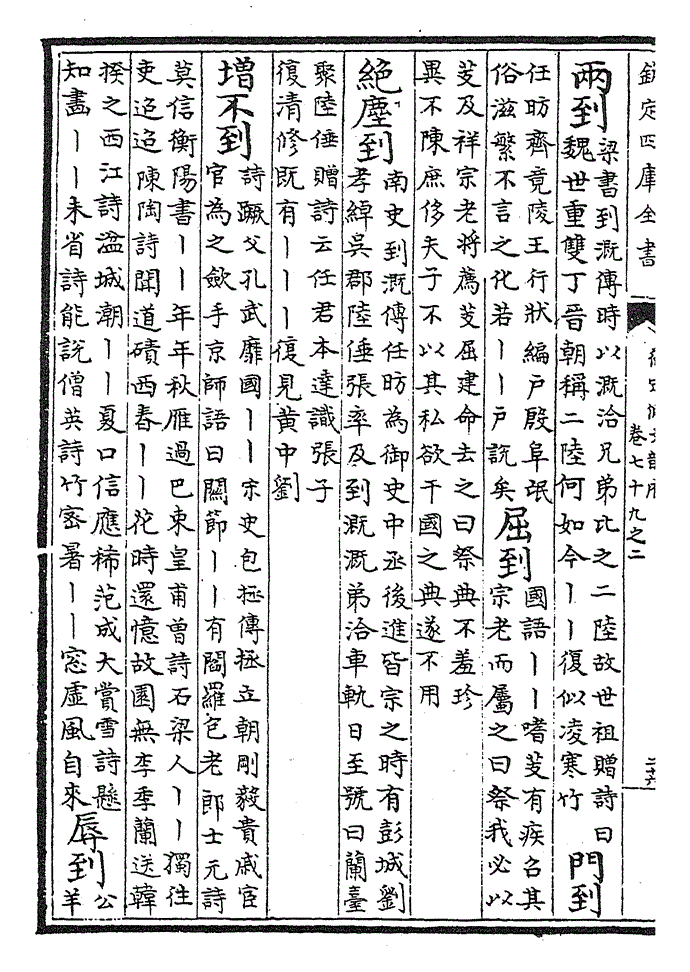 欽定四庫全書
卷七十九之二
二十六
兩到
梁書到溉傳時以溉洽兄弟比之二陸故世祖贈詩曰
魏世重雙丁晉朝稱二陸何如今丨丨復似凌寒竹
門到
任昉齊竟陵王行狀編戶殷阜氓
俗滋繁不言之化若丨丨戶說矣
屈到
國語丨丨嗜芰有疾召其
宗老而屬之曰祭我必以
芰及祥宗老將薦芰屈建命去之曰祭典不羞珍
異不陳庶侈夫子不以其私欲干國之典遂不用
絕塵到
南史到溉傳任昉為御史中丞後進皆宗之時有彭城劉
孝綽吳郡陸倕張率及到溉溉弟洽車軌日至號曰蘭臺
聚陸倕贈詩云任君本達識張子
復清修既有丨丨丨復見黃中劉
增不到
詩蹶父孔武靡國丨丨宋史包拯傳拯立朝剛毅貴戚宦
官為之斂手京師語曰關節丨丨有閻羅包老郎士元詩
莫信衡陽書丨丨年年秋雁過巴東皇甫曾詩石梁人丨丨獨往
更迢迢陳陶詩聞道磧西春丨丨花時還憶故園無李季蘭送韓
揆之西江詩湓城潮丨丨夏口信應稀范成大賞雪詩懸
知畫丨丨未省詩能說僧英詩竹密暑丨丨窓虛風自來
辱到
公
羊